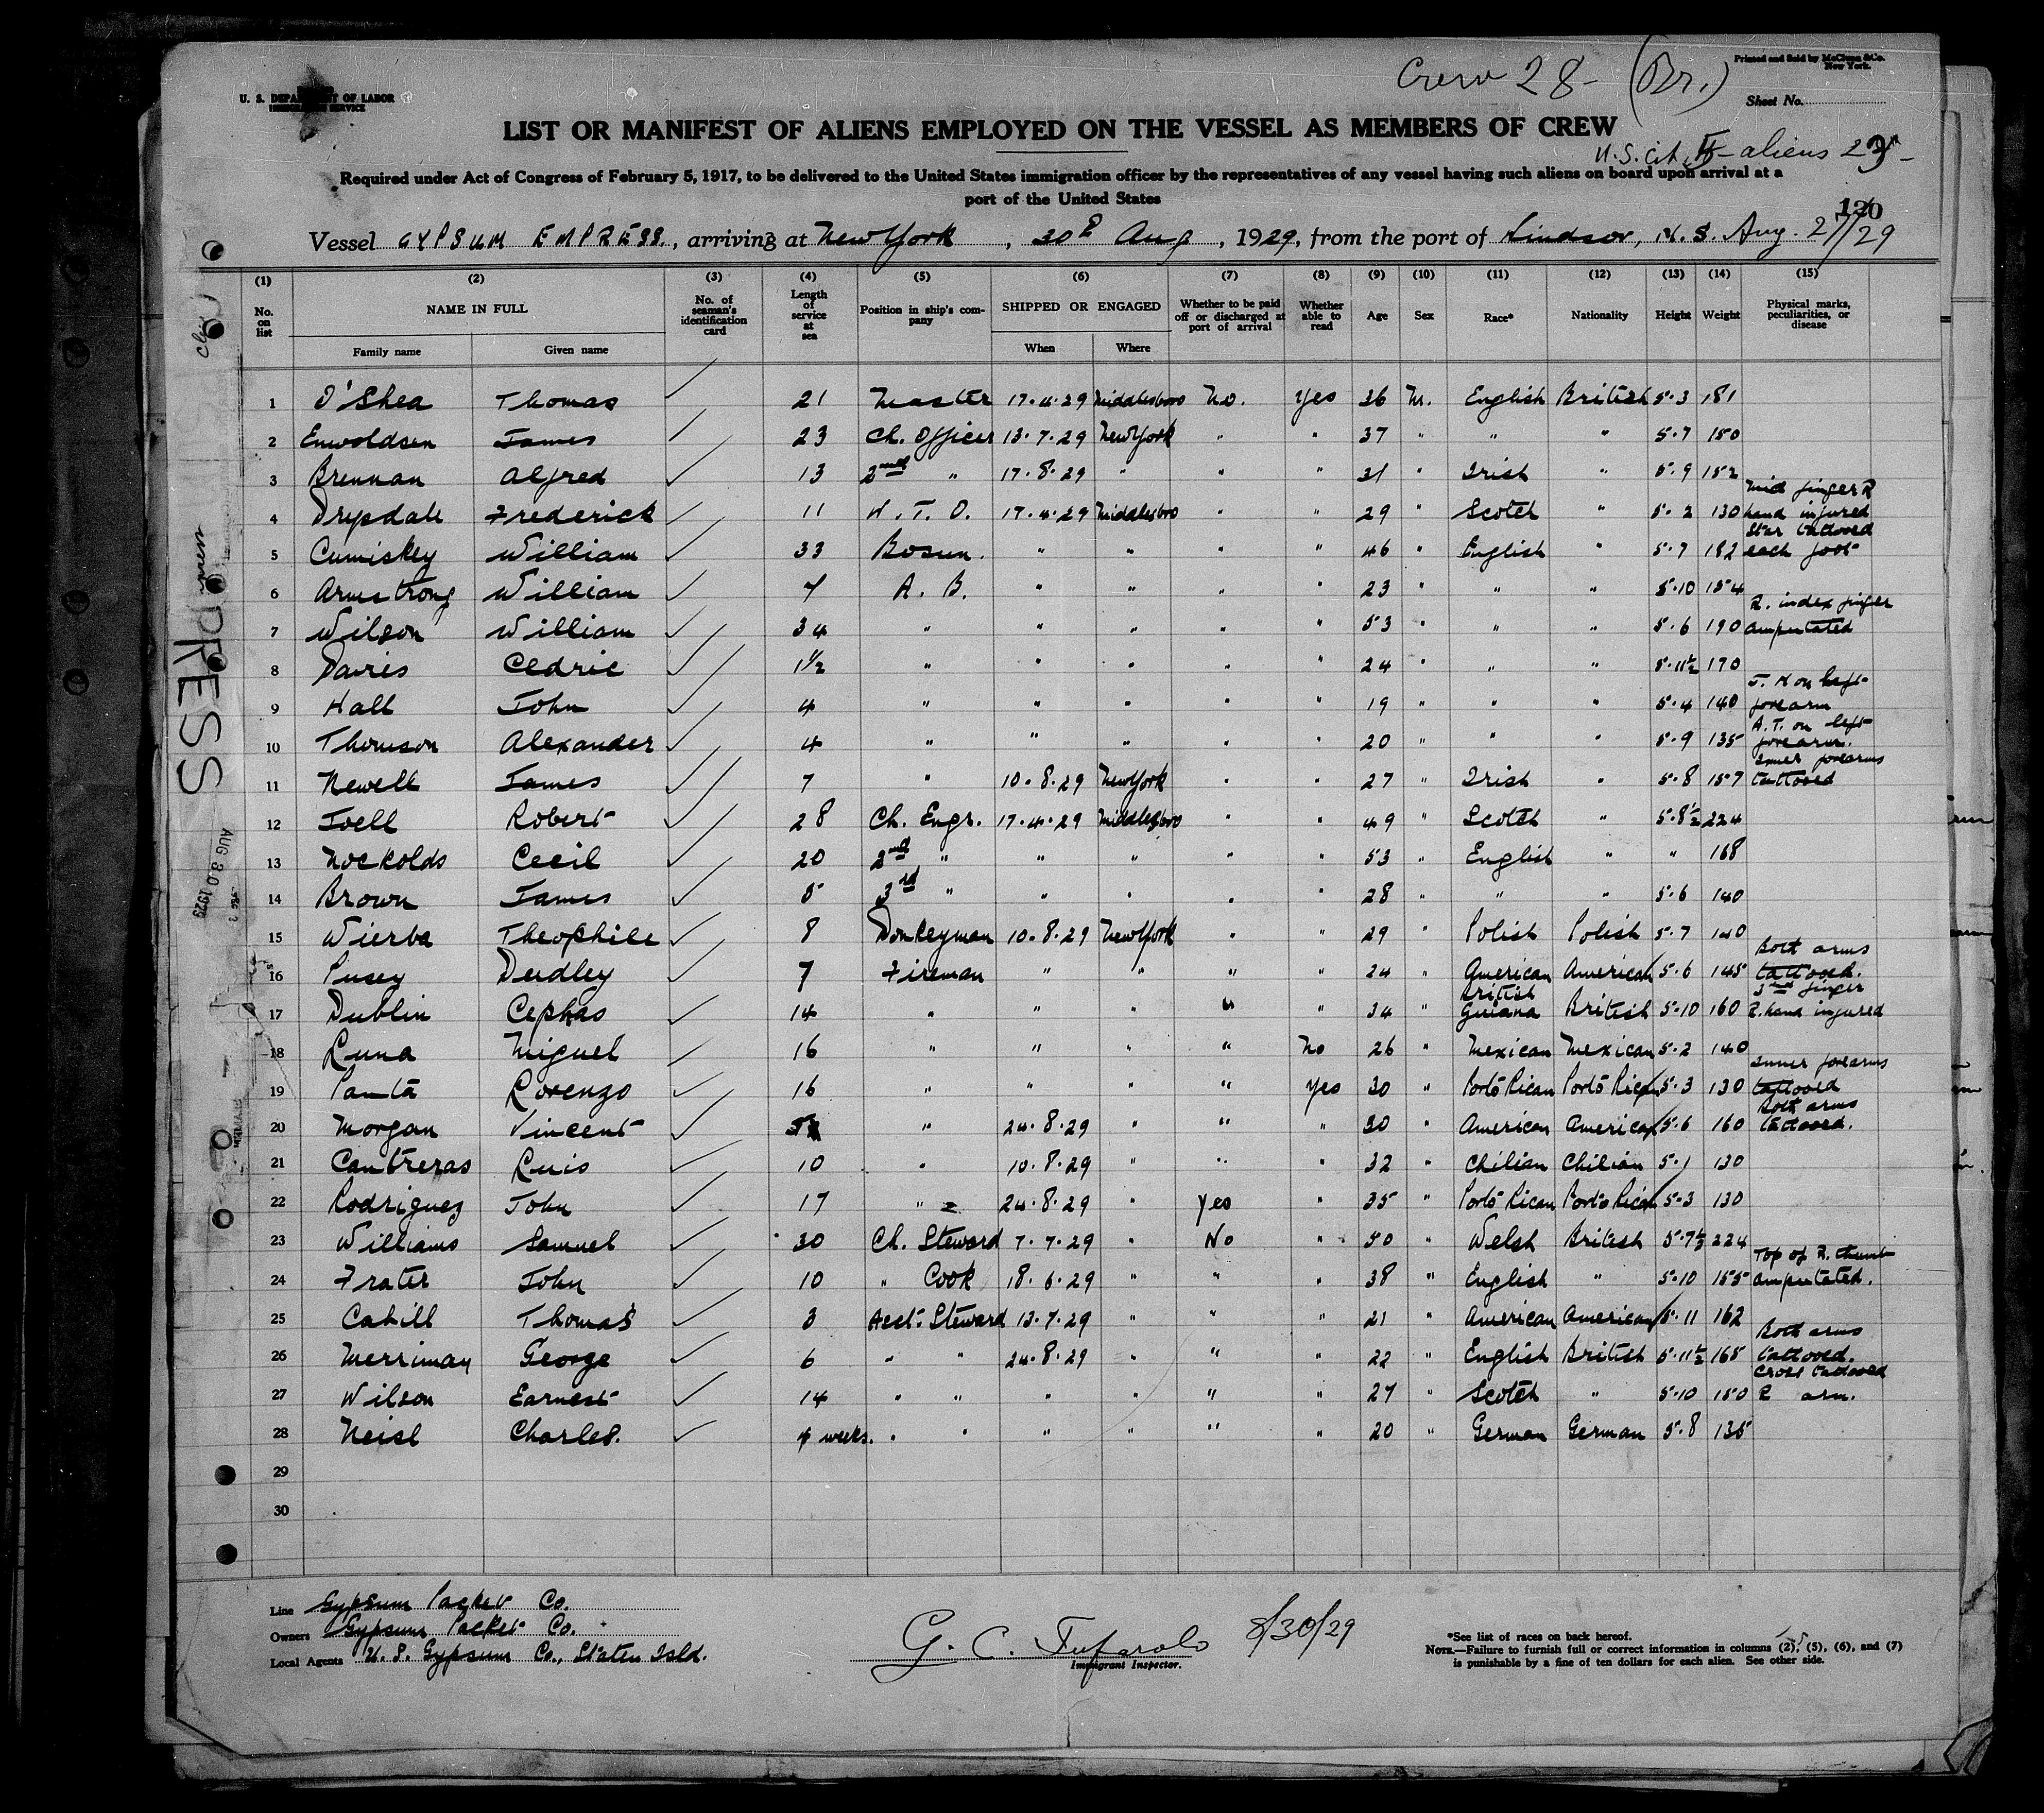 Crew 28 - (Br.)
Printed and Sold by McClunn & Co.
New York.
U. S. DEPARTMENT OF LABOR
IMMIGRATION SERVICE
Sheet No.
LIST OR MANIFEST OF ALIENS EMPLOYED ON THE VESSEL AS MEMBERS OF CREW
U.S. Cit. 5 - aliens 23 -
Required under Act of Congress of February 5, 1917, to be delivered to the United States immigration officer by the representatives of any vessel having such aliens on board upon arrival at a
port of the United States
120
Vessel GYPSUM EMPRESS, arriving at New York, 30th Aug, 1929, from the port of Windsor, N.S. Aug. 27/29
(1) (2) (3) (4) (5) (6) (7) (8) (9) (10) (11) (12) (13) (14) (15)
No. on list NAME IN FULL No. of seaman's identification card Length of service at sea Position in ship's company SHIPPED OR ENGAGED Whether to be paid off or discharged at port of arrival Whether able to read Age Sex Race* Nationality Height Weight Physical marks, peculiarities, or disease
Family name Given name When Where
1 O'Shea Thomas 21 Master 17.4.29 Middlesboro No. Yes 36 M. English British 5.3 181
2 Enwoldsen James 23 Ch. Officer 13.7.29 New York " " 37 " " " 5.7 150
3 Brennan Alfred 13 2nd " 17.8.29 " " " 31 " Irish " 5.9 152
4 Drysdale Frederick 11 W. T. O. 17.4.29 Middlesboro " " 29 " Scotch " 5.2 130 Mid finger R hand injured
5 Cumiskey William 33 Bosun. " " " " 46 " English " 5.7 182 Star tattooed each foot
6 Armstrong William 7 A. B. " " " " 23 " " " 5.10 154
7 Wilson William 34 " " " " " 53 " " " 5.6 190 R. index finger amputated
8 Davies Cedric 1½ " " " " " 24 " " " 5.11½ 170
9 Hall John 4 " " " " " 19 " " " 5.4 140 J. H on left forearm
10 Thomson Alexander 4 " " " " " 20 " " " 5.9 135 A. T. on left forearm.
11 Newell James 7 " 10.8.29 New York " " 27 " Irish " 5.8 157 Inner forearms tattooed
12 Joell Robert 28 Ch. Engr. 17.4.29 Middlesboro " " 49 " Scotch " 5.8½ 224
13 Nockolds Cecil 20 2nd " " " " " 53 " English " " 168
14 Brown James 5 3rd " " " " " 28 " " " 5.6 140
15 Wierba Theophile 8 Donkeyman 10.8.29 New York " " 29 " Polish Polish 5.7 140
16 Pusey Dudley 7 Fireman " " " " 24 " American American 5.6 145 Both arms tattooed.
17 Dublin Cephas 14 " " " " " 34 " British Guiana British 5.10 160 3rd finger R. hand injured
18 Luna Miguel 16 " " " " No 26 " Mexican Mexican 5.2 140
19 Panta Lorenzo 16 " " " " Yes 30 " Porto Rican Porto Rican 5.3 130 Inner forearms tattooed
20 Morgan Vincent " 24.8.29 " " " 30 " American American 5.6 160 Both arms tattooed.
21 Contreras Luis 10 " 10.8.29 " " " 32 " Chilian Chilian 5.1 130
22 Rodriguez John 17 " 24.8.29 " Yes " 35 " Porto Rican Porto Rican 5.3 130
23 Williams Samuel 30 Ch. Steward 7.7.29 " No " 50 " Welsh British 5.7½ 224
24 Frater John 10 " Cook 18.6.29 " " " 38 " English " 5.10 155 Top of R. thumb amputated.
25 Cahill Thomas 3 Asst. Steward 13.7.29 " " " 21 " American American 5.11 162
26 Merriman George 6 " " 24.8.29 " " " 22 " English British 5.11½ 165 Both arms tattooed.
27 Wilson Earnest 14 " " " " " " 27 " Scotch " 5.10 150 Cross tattooed R arm.
28 Neisl Charles. 4 weeks. " " " " " " 20 " German German 5.8 135
29
30
PRESS
AUG 30 1929
Line Gypsum Packet Co.
Owners Gypsum Packet Co.
Local Agents U. S. Gypsum Co., Staten Isld.
8/30/29
Immigrant Inspector.
*See list of races on back hereof.
NOTE.—Failure to furnish full or correct information in columns (2), (5), (6), and (7)
is punishable by a fine of ten dollars for each alien. See other side.